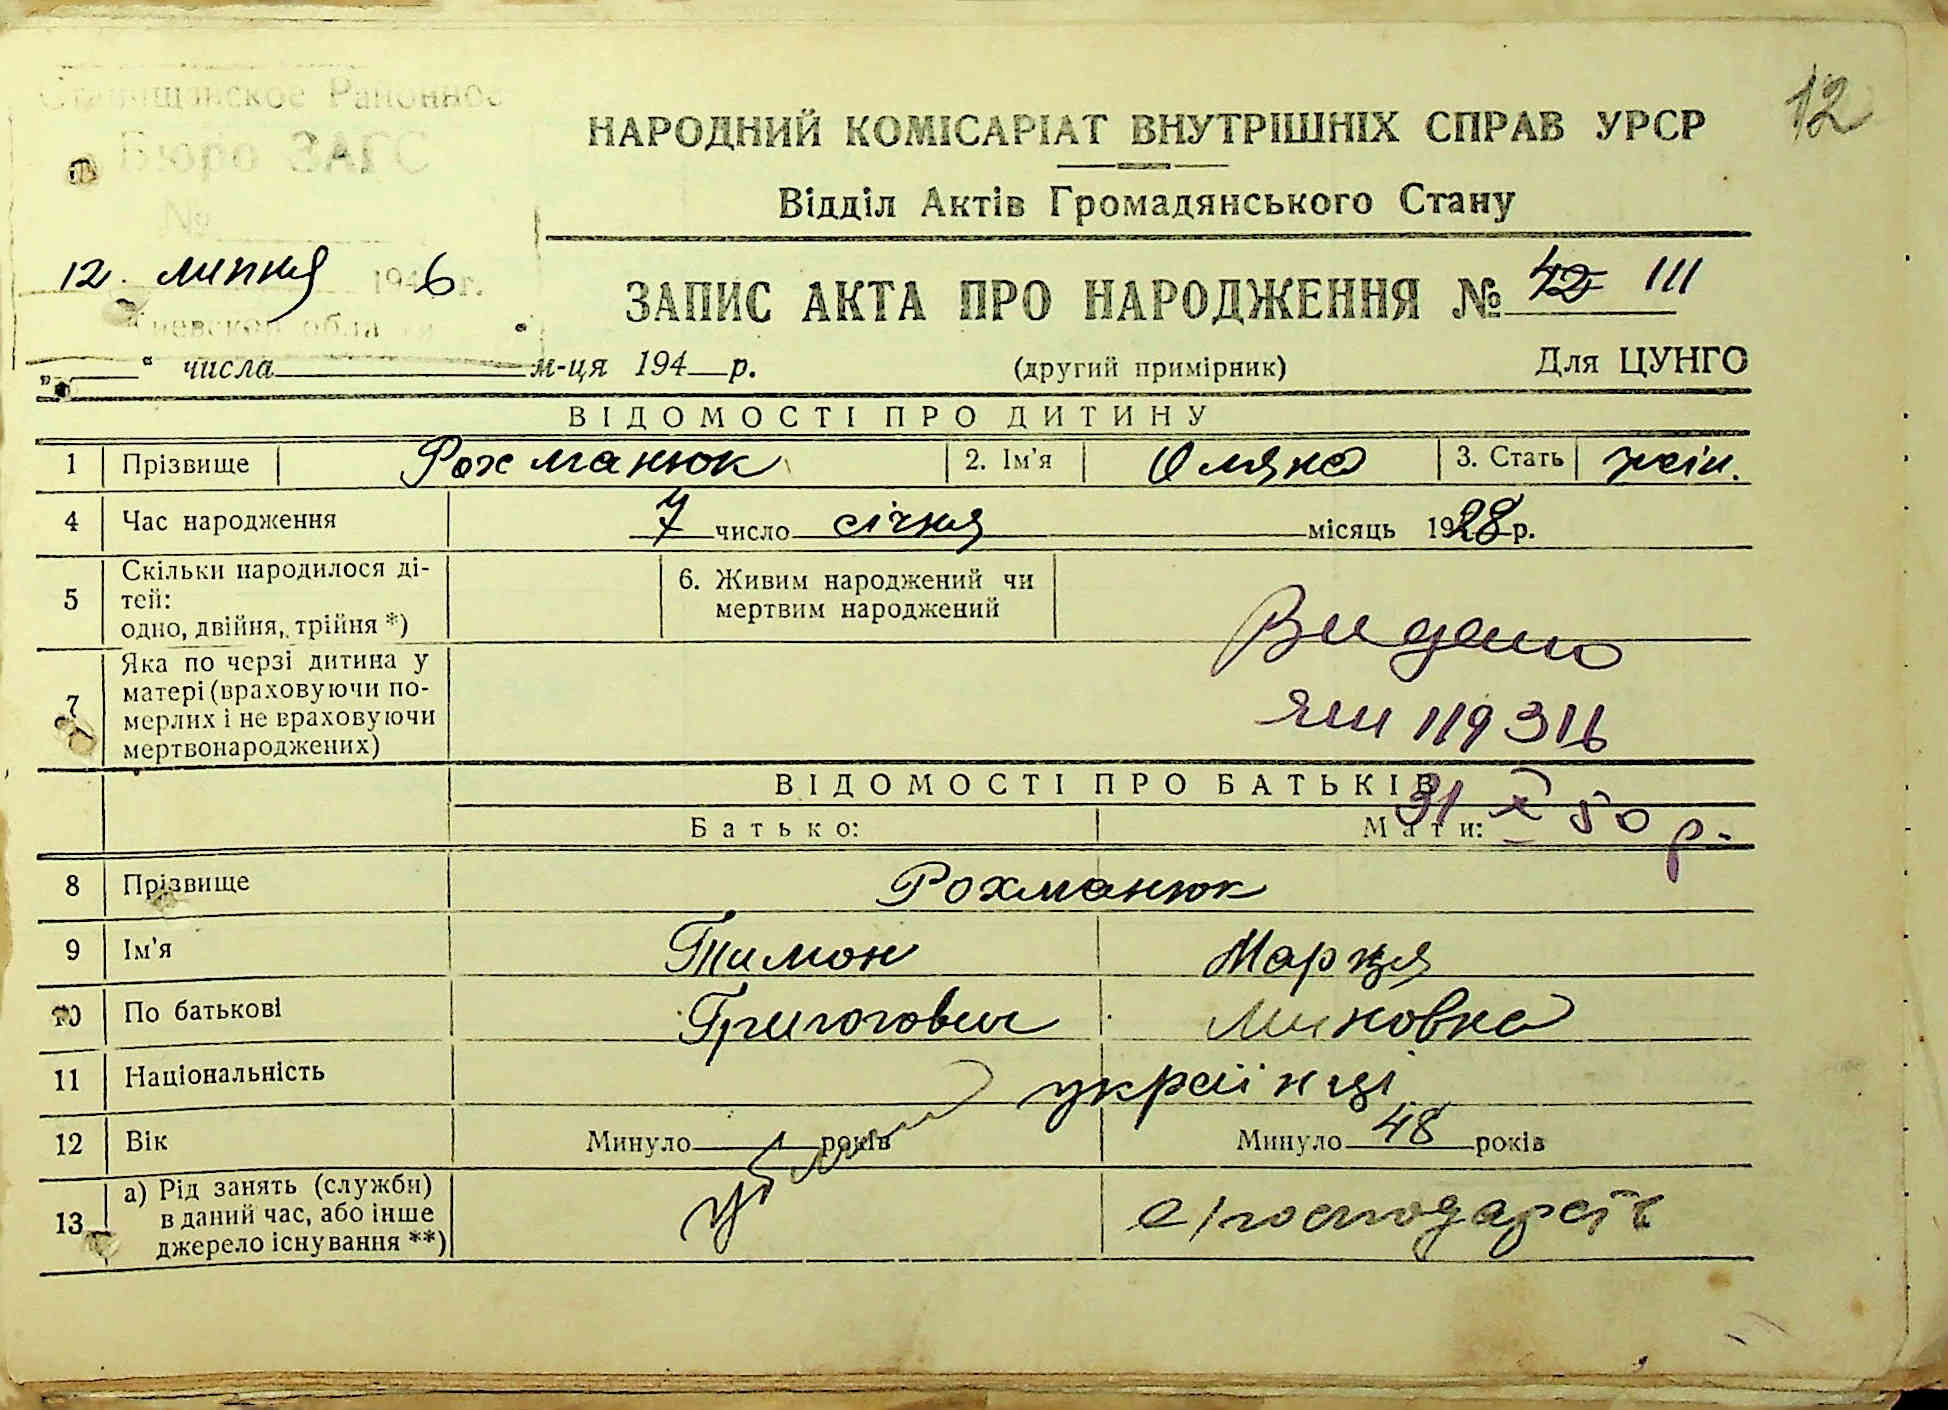 12
Ставищанское Районное
Бюро ЗАГС
№
12 липня 1946 г.
Киевской обла
НАРОДНИЙ КОМІСАРІАТ ВНУТРІШНІХ СПРАВ УРСР
Відділ Актів Громадянського Стану
ЗАПИС АКТА ПРО НАРОДЖЕННЯ № 42 111
„ “ числа м-ця 194 р. (другий примірник) Для ЦУНГО
ВІДОМОСТІ ПРО ДИТИНУ
1 Прізвище Рохманюк 2. Ім'я Оляна 3. Стать жін.
4 Час народження 7 число січня місяць 1928 р.
5 Скільки народилося ді-
тей:
одно, двійня, трійня *)
6. Живим народжений чи
мертвим народжений
7 Яка по черзі дитина у
матері (враховуючи по-
мерлих і не враховуючи
мертвонароджених)
Видано
119316
31 X 50 р.
ВІДОМОСТІ ПРО БАТЬКІВ
Батько: Мати:
8 Прізвище Рохманюк
9 Ім'я Тимон Марця
10 По батькові Григорович
11 Національність українці
12 Вік Минуло років Минуло 48 років
13 а) Рід занять (служби)
в даний час, або інше
джерело існування **)